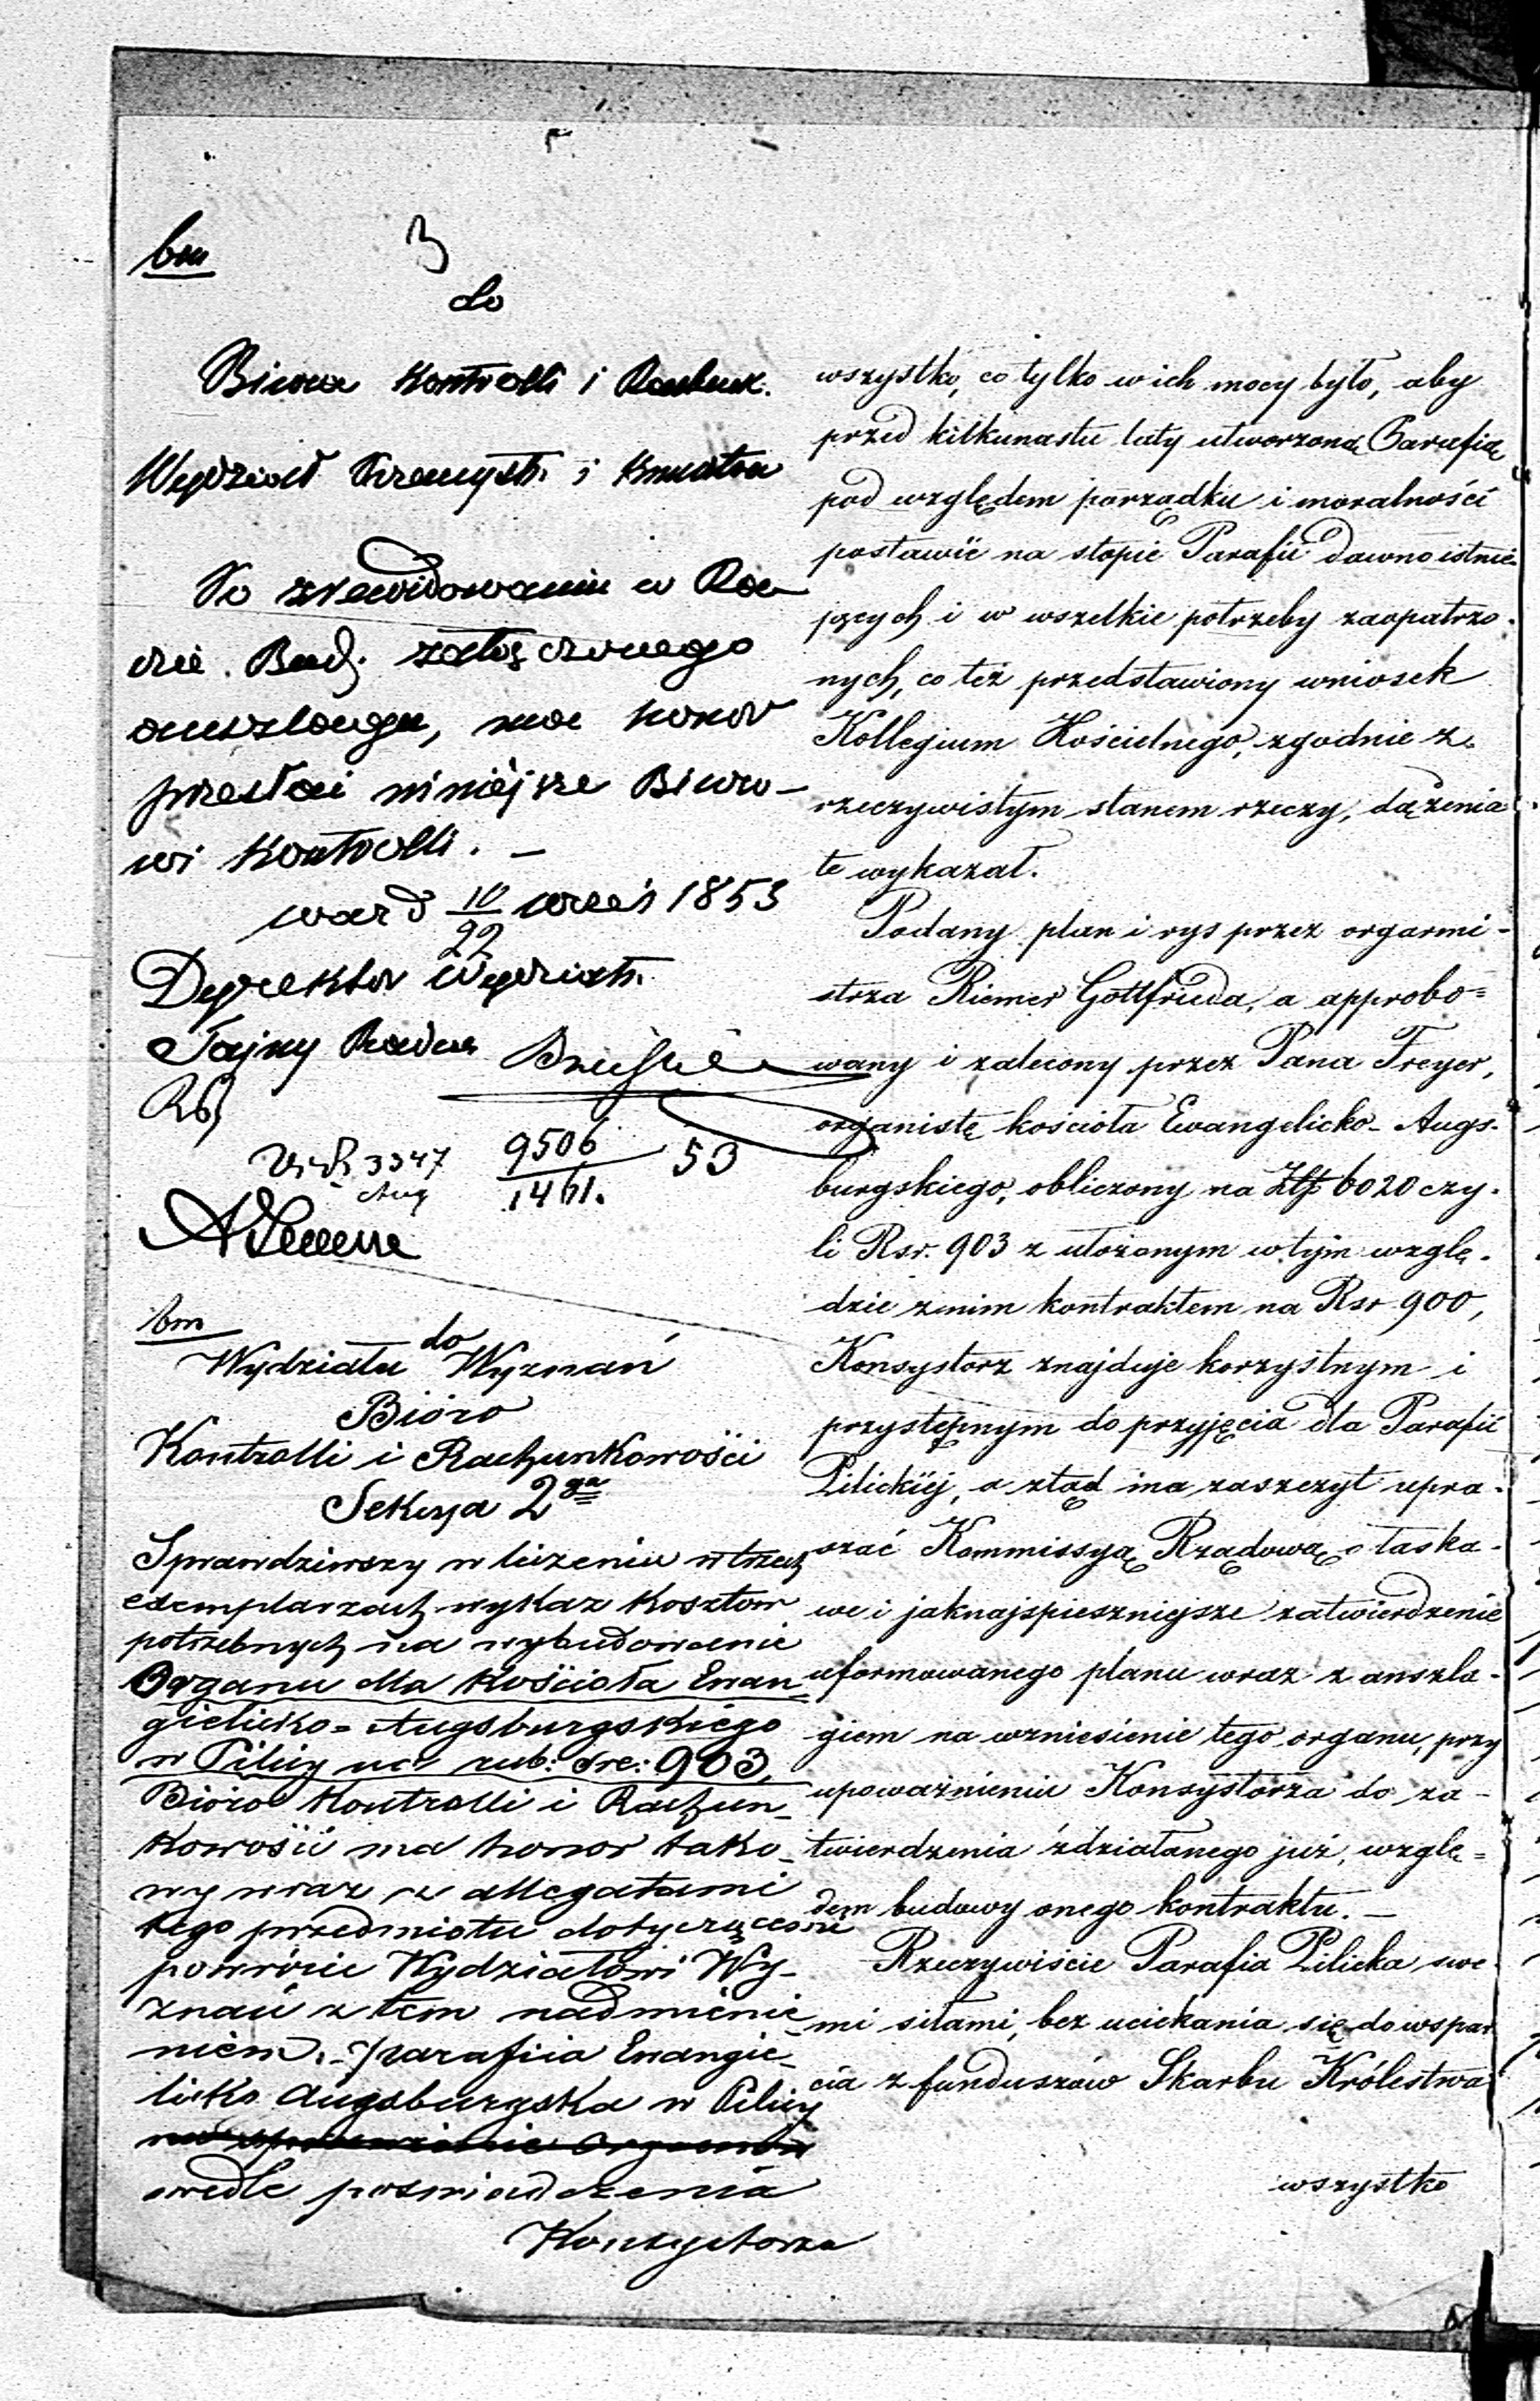 bm
3
do
Biura Kontrolli i Rachunk.
Wydział Przemysłu i Kunsztów
Po zrewidowaniu w Ra-
dzie Bud. załączonego
anszlangu, ma honor
przesłać niniejsze Biuro-
wi Kontrolli. –
war d 10/22 wrześ 1853
Dyrektor Wydziału
Tajny Radca
3347
9506/1461. 53
bm
do
Wydziału Wyznań
Bióro
Kontrolli i Rachunkowości
Sekcya 2ga
Sprawdziwszy w liczeniu w trzech
exemplarzach wykaz kosztów
potrzebnych na wybudowanie
Organu dla Kościoła Ewan-
gielicko-Augsburgskiego
w Pilicy na rub: sre: 903,
Bióro Kontrolli i Rachun-
kowości ma honor tako-
wy wraz z allegatami
tego przedmiotu dotyczącemi
powrócić Wydziałowi Wy-
znań z tem nadmienie-
niem, – Parafiia Ewangie-
licko Augsburgska w Pilicy
wedle poswiadczenia
Konsystorza
wszystko, co tylko w ich mocy było, aby
przed kilkunastu laty utworzoną Parafią
pod względem porządku i moralności
postawić na stopie Parafii dawno istnie-
jących i w wszelkie potrzeby zaopatrzo-
nych, co też przedstawiony wniosek
Kollegium Kościelnego, zgodnie z
rzeczywistym stanem rzeczy, dążenia
te wykazał.
Podany plan i rys przez orgarmi-
strza Riemer Gottfrieda, a approbo=
wany i zalecony przez Pana Freyer,
organistę kościoła Ewangelicko-Augs-
burgskiego, obliczony na Złp 6020 czy-
li Rsr. 903 z ułożonym w tym wzglę-
dzie z nim kontraktem na Rsr 900,
Konsystorz znajduje korzystnym i
przystępnym do przyjęcia dla Parafii
Pilickiéj, a ztąd ma zaszczyt upra-
szać Kommissyą Rządową o łaska-
we i jaknajspieszniejsze zatwierdzenie
uformowanego planu wraz z anszla-
giem na wzniesienie tego organu, przy
upoważnieniu Konsystorza do za-
twierdzenia zdziałanego już, wzglę=
dem budowy onego kontraktu. –
Rzeczywiście Parafia Pilicka swe-
mi siłami, bez uciekania się do wspar
cia z funduszów Skarbu Królestwa
wszystko